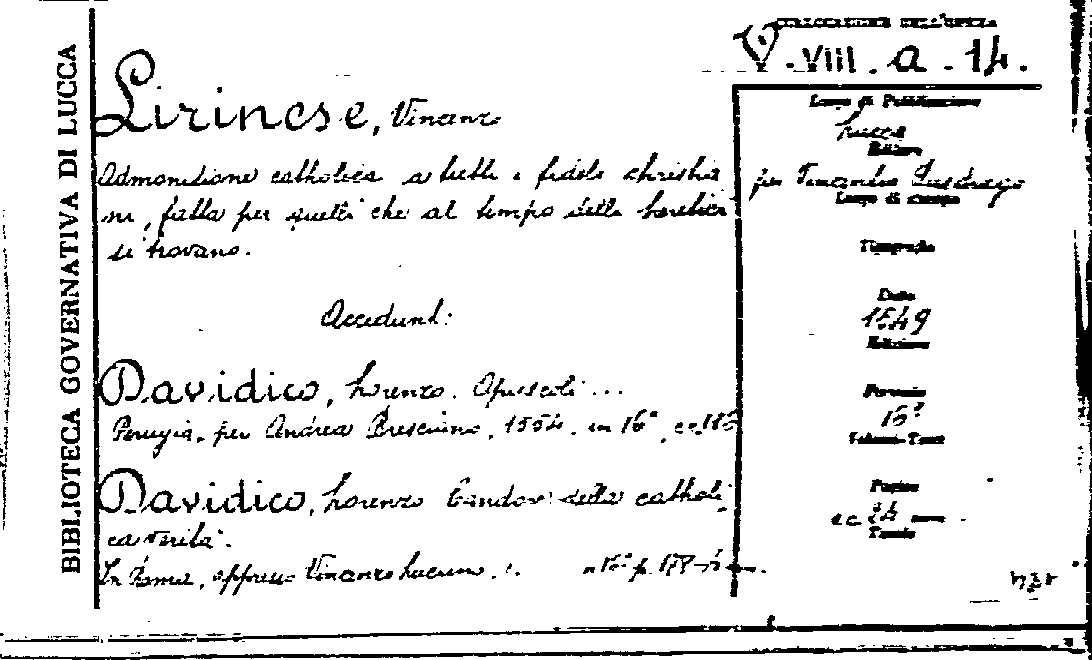 BIBLIOTECA GOVERNATIVA DI LUCCA
COLLOCAZIONE DELL'OPERA
V. VIII. a. 14.
Lirinese, Vincenzo
Admonitione catholica a tutti i fideli christia
ni, fatta per quelli che al tempo delli heretici
si trovano.
Accedunt:
Davidico, Lorenzo. Opuscoli ...
Perugia, per Andrea Bresciano, 1554. in 16°, cc.
Davidico, Lorenzo Candor della catholi
ca verità.
In Roma, appresso Vincenzo Lucrino, in 16° p.
Luogo di Pubblicazione
Lucca
Editore
per Vincentio Busdrago
Luogo di stampa
Tipografo
Data
1549
Edizione
Formato
16°
Volume-Tomo
Pagine
cc. 24
Tavole